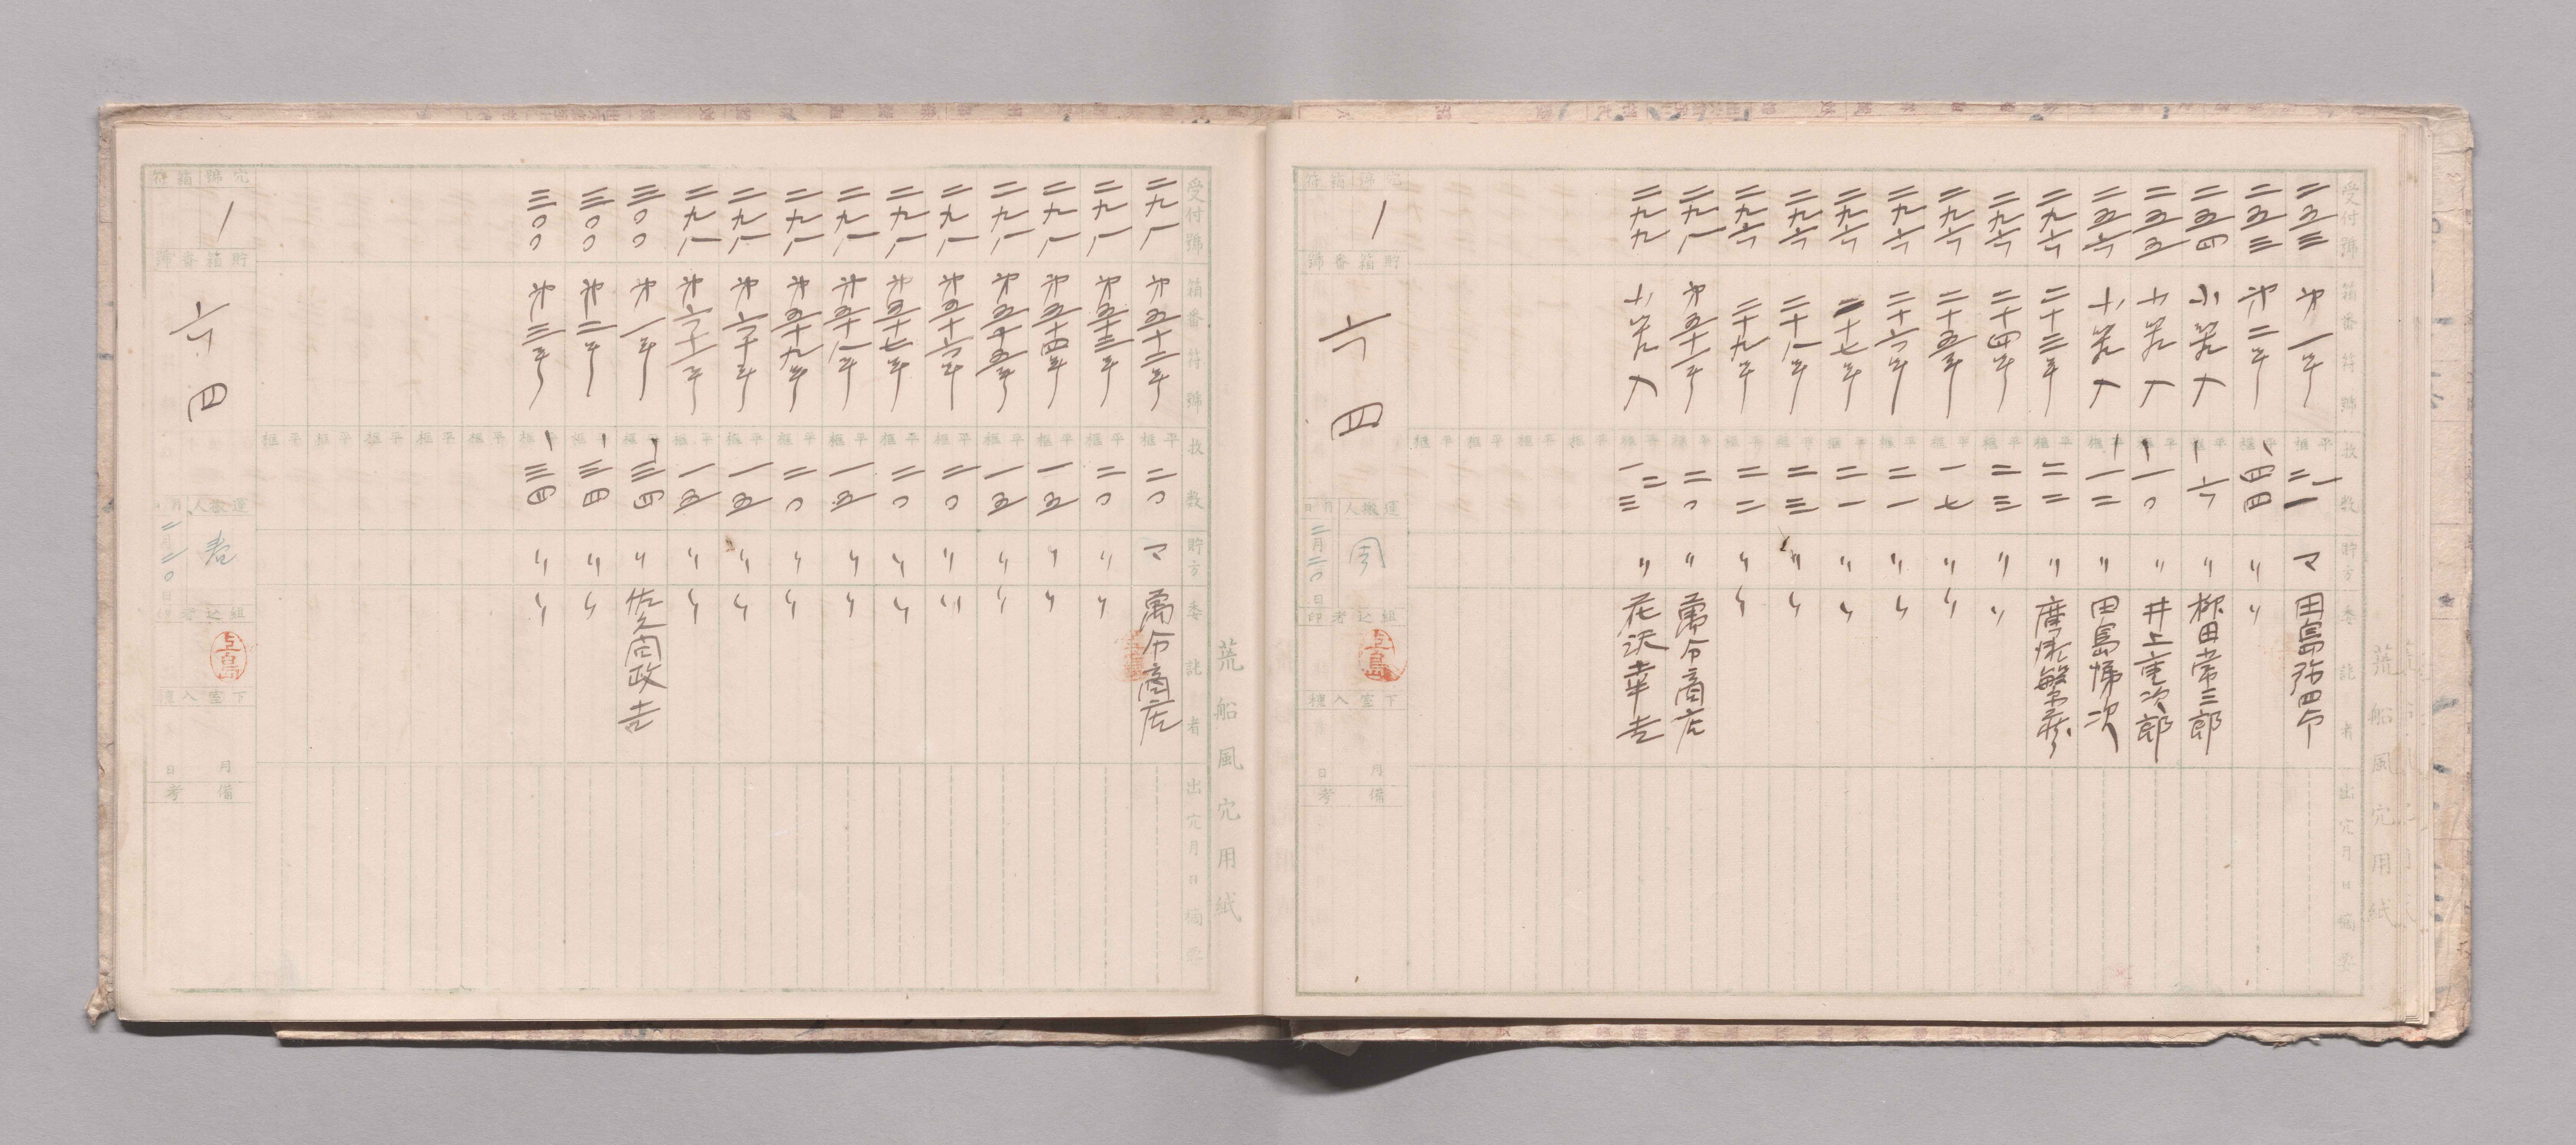 荒船風穴用紙
受付號 箱番符號 枚数 貯方 委託者 出穴月日 摘要
二五三 第一号 二一 マ 田島弥四郎
二五三 第二号 四四 〃 〃
二五四 小箱入 一六 〃 柳田常三郎
二五五 小箱入 一〇 〃 井上重次郎
二五六 小箱入 一二 〃 田島悌次
二九六 二十三号 二二 〃
二九六 二十四号 二三 〃 〃
二九六 二十五号 一七 〃 〃
二九六 二十六号 二一 〃 〃
二九六 二十七号 二一 〃 〃
二九六 二十八号 二三 〃 〃
二九六 二十九号 二二 〃 〃
二九八 第五十一号 二〇 〃 萬合商店
二九九 小箱入 〃 花沢幸吉
穴號箱符
一
貯箱番號
六四
運搬人 月日
二月二〇日
組込者印
上島
下室入積
月 日
備考
荒船風穴用紙
受付號 箱番符號 枚数 貯方 委託者 出穴月日 摘要
二九八 第五十二号 二〇 マ 萬合商店
二九八 第五十三号 二〇 〃 〃
二九八 第五十四号 一五 〃 〃
二九八 第五十五号 一五 〃 〃
二九八 第五十六号 二〇 〃 〃
二九八 第五十七号 二〇 〃 〃
二九八 第五十八号 一五 〃 〃
二九八 第五十九号 二〇 〃 〃
二九八 第六十号 一五 〃 〃
二九八 第六十一号 一五 〃 〃
三〇〇 第一号 三四 〃
三〇〇 第二号 三四 〃 〃
三〇〇 第三号 三四 〃 〃
穴號箱符
一
貯箱番號
六四
運搬人 月日
二月二〇日
組込者印
上島
下室入積
月 日
備考